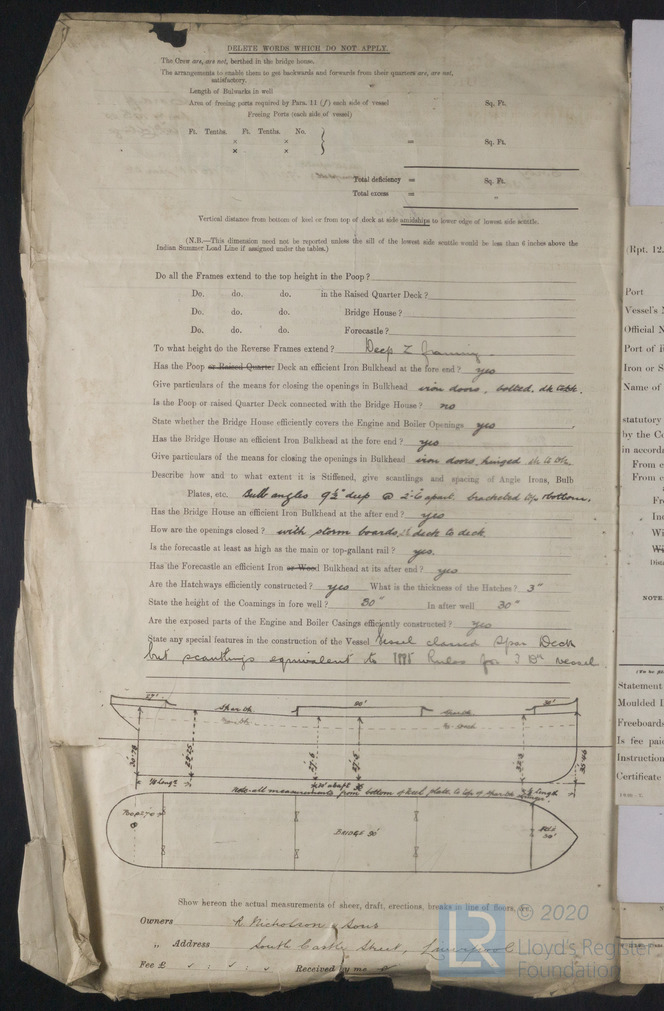 DELETE WORDS WHICH DO NOT APPLY.
The Crew are, are not, berthed in the bridge house.
The arrangements to enable them to get backwards and forwards from their quarters are, are not,
satisfactory.
Length of Bulwarks in well
Area of freeing ports required by Para. 11 (f) each side of vessel Sq. Ft.
Freeing Ports (each side of vessel)
Ft. Tenths. Ft. Tenths. No.
× × = Sq. Ft.
× ×
Total deficiency = Sq. Ft.
Total excess = "
Vertical distance from bottom of keel or from top of deck at side amidships to lower edge of lowest side scuttle.
(N.B.—This dimension need not be reported unless the sill of the lowest side scuttle would be less than 6 inches above the
Indian Summer Load Line if assigned under the tables.)
Do all the Frames extend to the top height in the Poop?
Do. do. do. in the Raised Quarter Deck?
Do. do. do. Bridge House?
Do. do. do. Forecastle?
To what height do the Reverse Frames extend? Deep Z framing
Has the Poop or Raised Quarter Deck an efficient Iron Bulkhead at the fore end? yes
Give particulars of the means for closing the openings in Bulkhead iron doors, bolted,
Is the Poop or raised Quarter Deck connected with the Bridge House? no
State whether the Bridge House efficiently covers the Engine and Boiler Openings yes
Has the Bridge House an efficient Iron Bulkhead at the fore end? yes
Give particulars of the means for closing the openings in Bulkhead iron doors, hinged
Describe how and to what extent it is Stiffened, give scantlings and spacing of Angle Irons, Bulb
Plates, etc. Bulb angles 9½" deep @ 2'-6 apart. bracketed top & bottom.
Has the Bridge House an efficient Iron Bulkhead at the after end? yes
How are the openings closed? with storm boards, deck to deck
Is the forecastle at least as high as the main or top-gallant rail? yes.
Has the Forecastle an efficient Iron or Wood Bulkhead at its after end? yes
Are the Hatchways efficiently constructed? yes What is the thickness of the Hatches? 3"
State the height of the Coamings in fore well? 30" In after well 30"
Are the exposed parts of the Engine and Boiler Casings efficiently constructed? yes
State any special features in the construction of the Vessel Vessel classed Spar Deck
but scantlings equivalent to Rules for 3 Dk vessel
Spar Dk. 90'
Note all measurements from bottom of keel plate to top of spar dk
BRIDGE 90'
30'
Show hereon the actual measurements of sheer, draft, erections, breaks in line of floors, &c.
Owners R Nicholson & Sons
" Address South Castle Street, Liverpool
Fee £ : : Received by me
LR © 2020
Lloyd's Register
Foundation
(Rpt. 12.
Port
Vessel's
Official N
Port of
Iron or S
Name of
statutory
by the Co
in accord
From
From
Fr
In
Wi
NOTE.
Statement
Moulded
Freeboard
Is fee paid
Instruction
Certificate